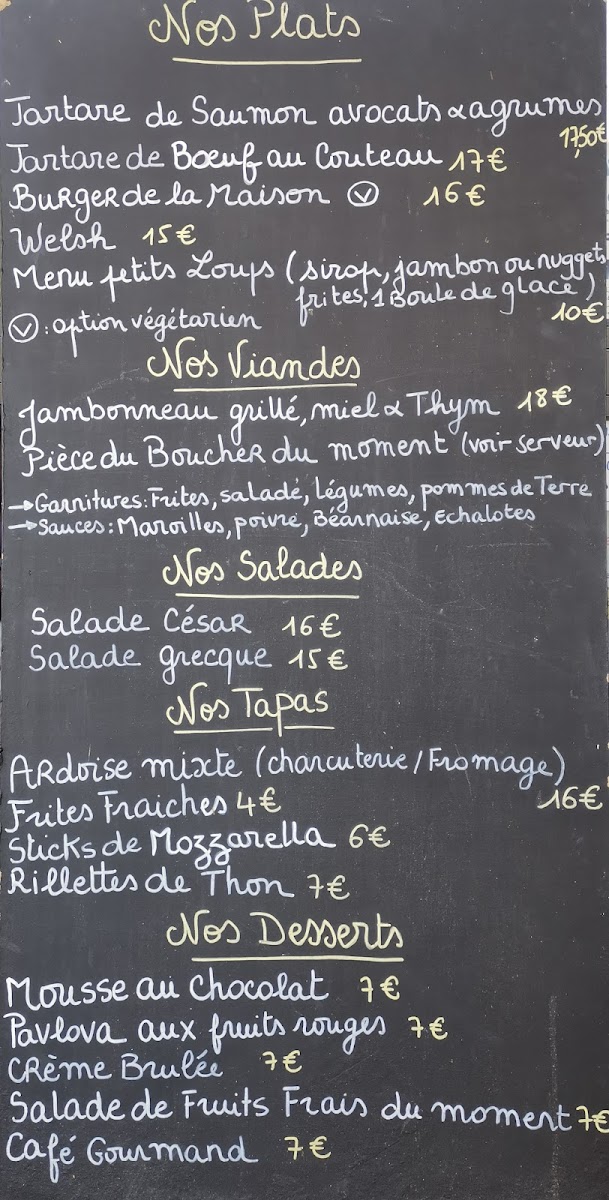 Nos Plats
Tartare de Saumon avocats & agrumes
17,50€
Tartare de Bœuf au Couteau 17€
Burger de la Maison Ⓥ 16€
Welsh 15€
Menu petits Loups (sirop, jambon ou nuggets
frites, 1 Boule de glace)
10€
Ⓥ : option végétarien
Nos Viandes
Jambonneau grillé, miel & Thym 18€
Pièce du Boucher du moment (voir serveur)
→ Garnitures: Frites, salade, légumes, pommes de Terre
→ Sauces: Maroilles, poivre, Béarnaise, Echalotes
Nos Salades
Salade César 16€
Salade grecque 15€
Nos Tapas
Ardoise mixte (charcuterie / Fromage)
16€
Frites Fraiches 4€
Sticks de Mozzarella 6€
Rillettes de Thon 7€
Nos Desserts
Mousse au Chocolat 7€
Pavlova aux fruits rouges 7€
Crème Brulée 7€
Salade de Fruits Frais du moment 7€
Café Gourmand 7€